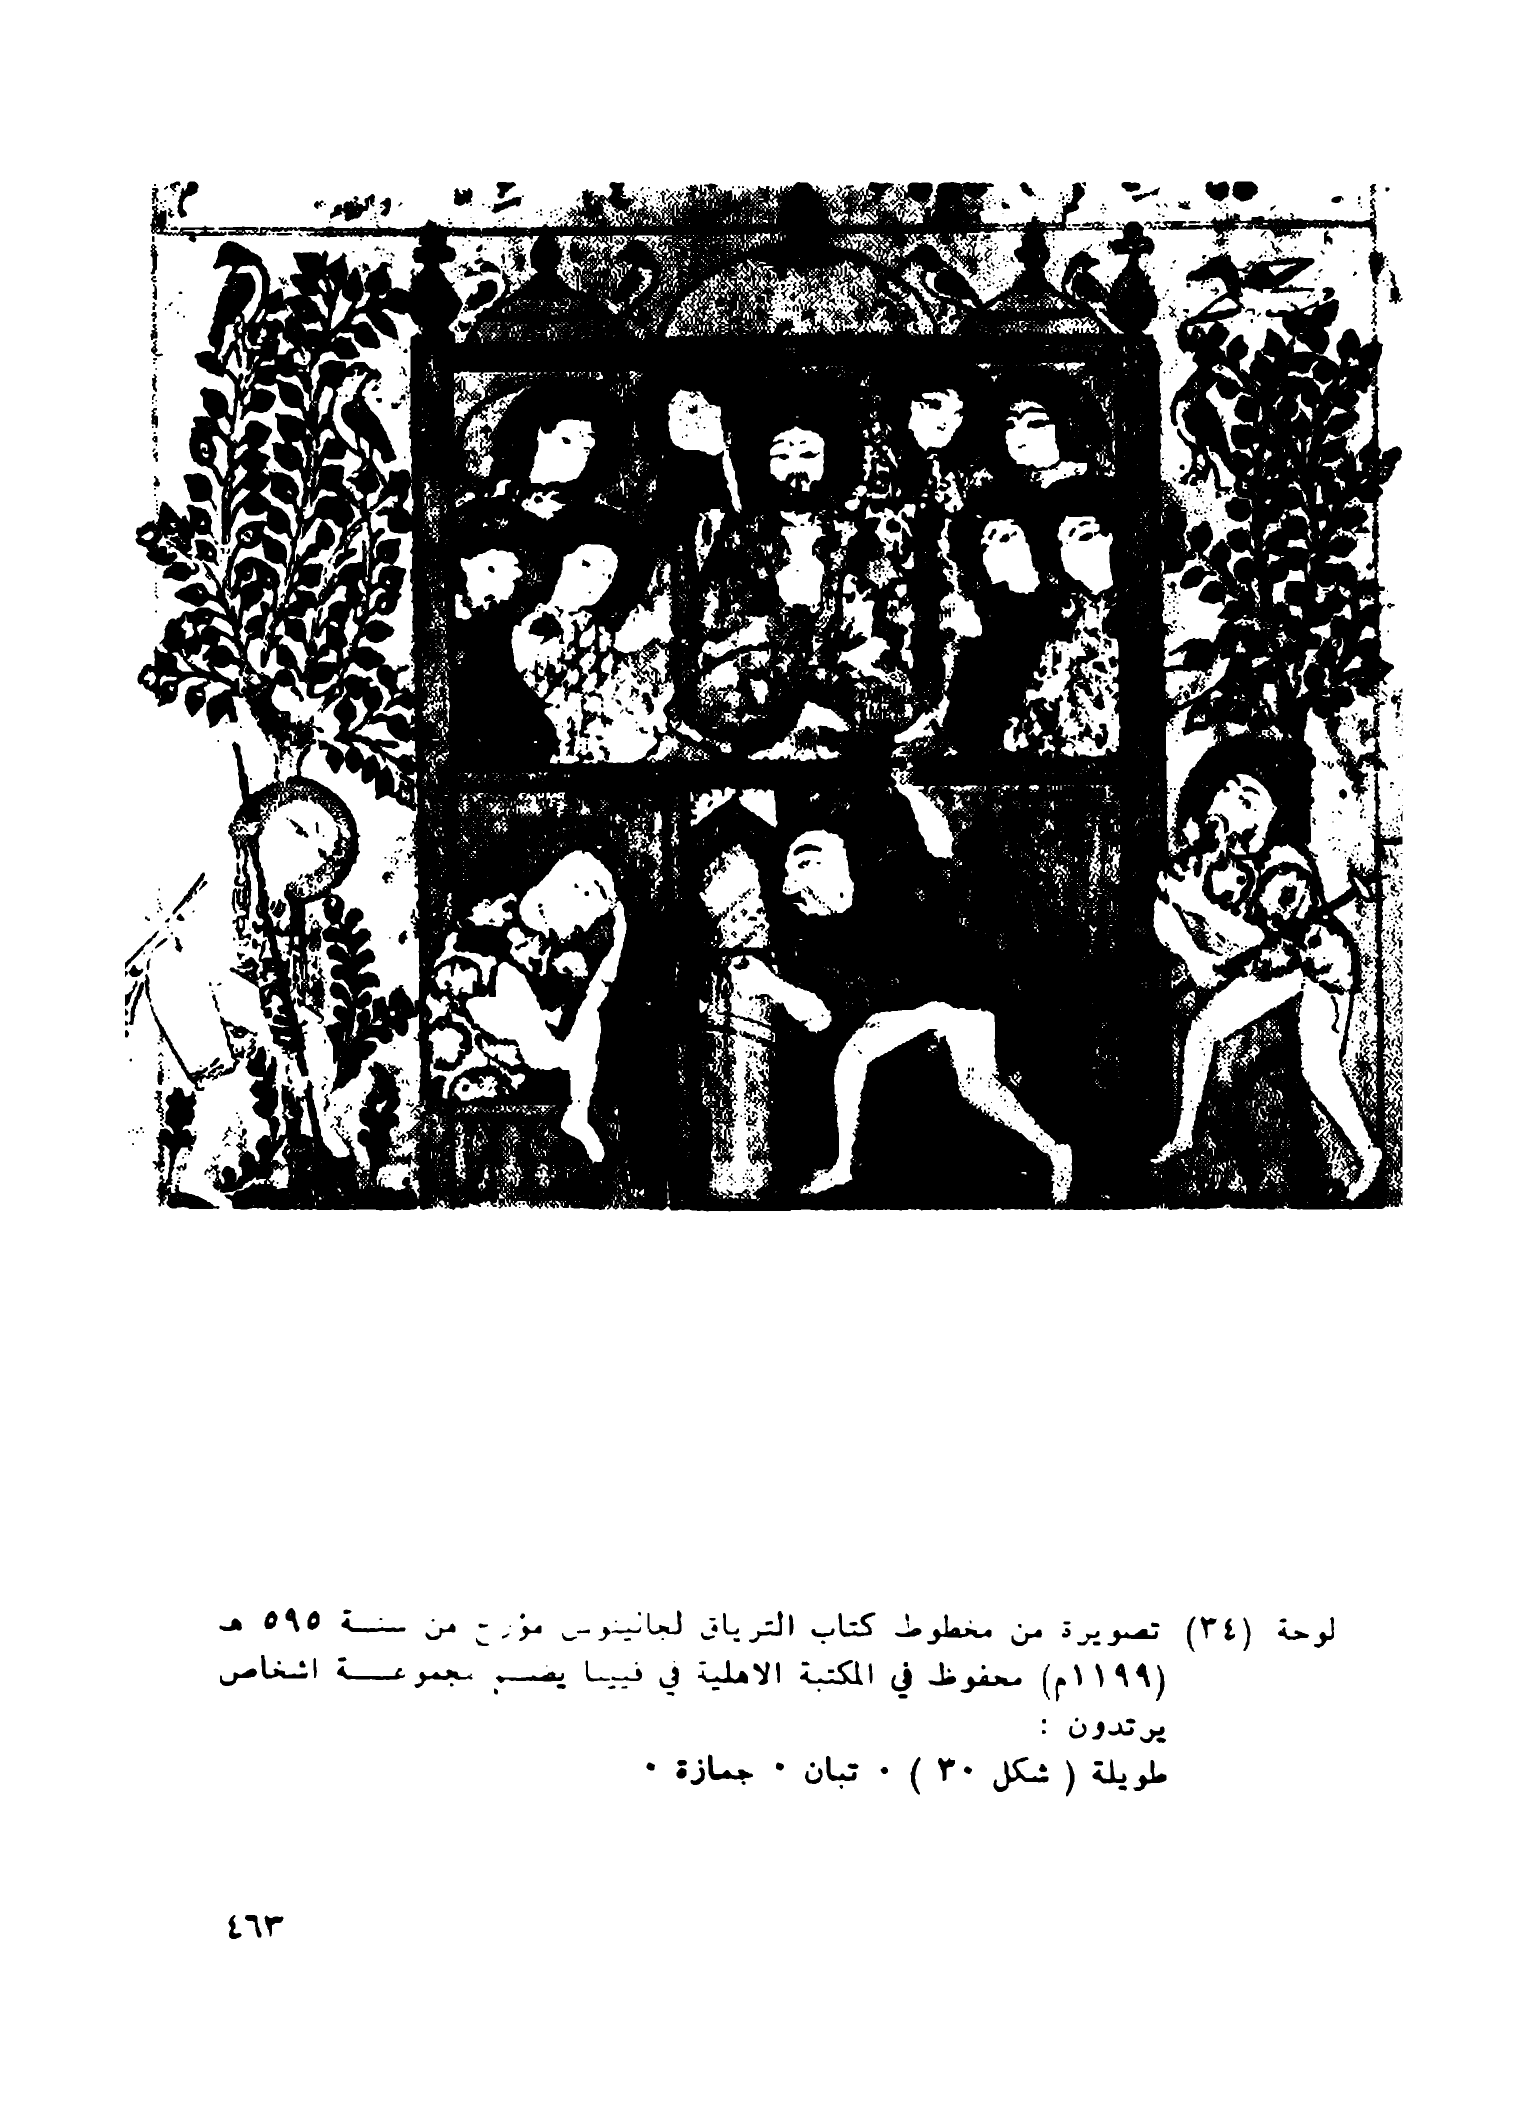 لوحة (٣٤) تصويرة من مخطوط كتاب الترياق لجالينوس مؤرخ من سنة ٥٩٥ هـ
(١١٩٩م) محفوظ في المكتبة الاهلية في فيينا يضم مجموعة اشخاص
يرتدون :
طويلة ( شكل ٣٠ ) ٠ تبان ٠ جمازة ٠
٤٦٣